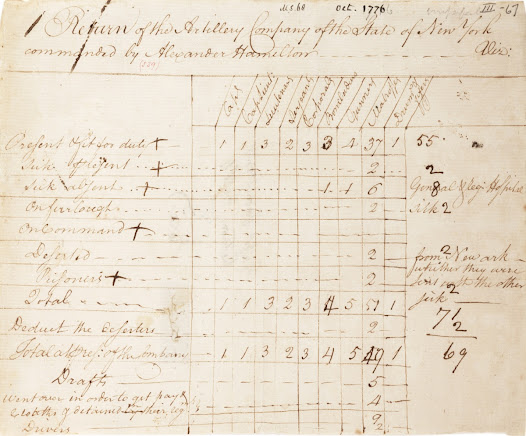 M.S. 68 Oct. 1776 III-67
Return of the Artillery Company of the State of New York
commanded by Alexander Hamilton Viz:
Capt Lieutenants Serjeants Corporals Bombardiers Gunners Matrosses
Present & fit for duty + 1 1 3 2 3 3 4 37 1 55
Sick present + 2 2
Sick absent + 1 1 6 8 General & regl. Hospital
On furlough 2 sick 2
On Command +
Deserted 2 from Newark
Prisoners + 2 2 whether they were
Total 1 1 3 2 3 4 5 51 1 sick 2
Deduct the deserters 2 71
2
Total of the Company 1 1 3 2 3 4 5 49 1 69
Drafts 5
Went over in order to get pay & 4
clothes & detained by their
Drivers 9
2